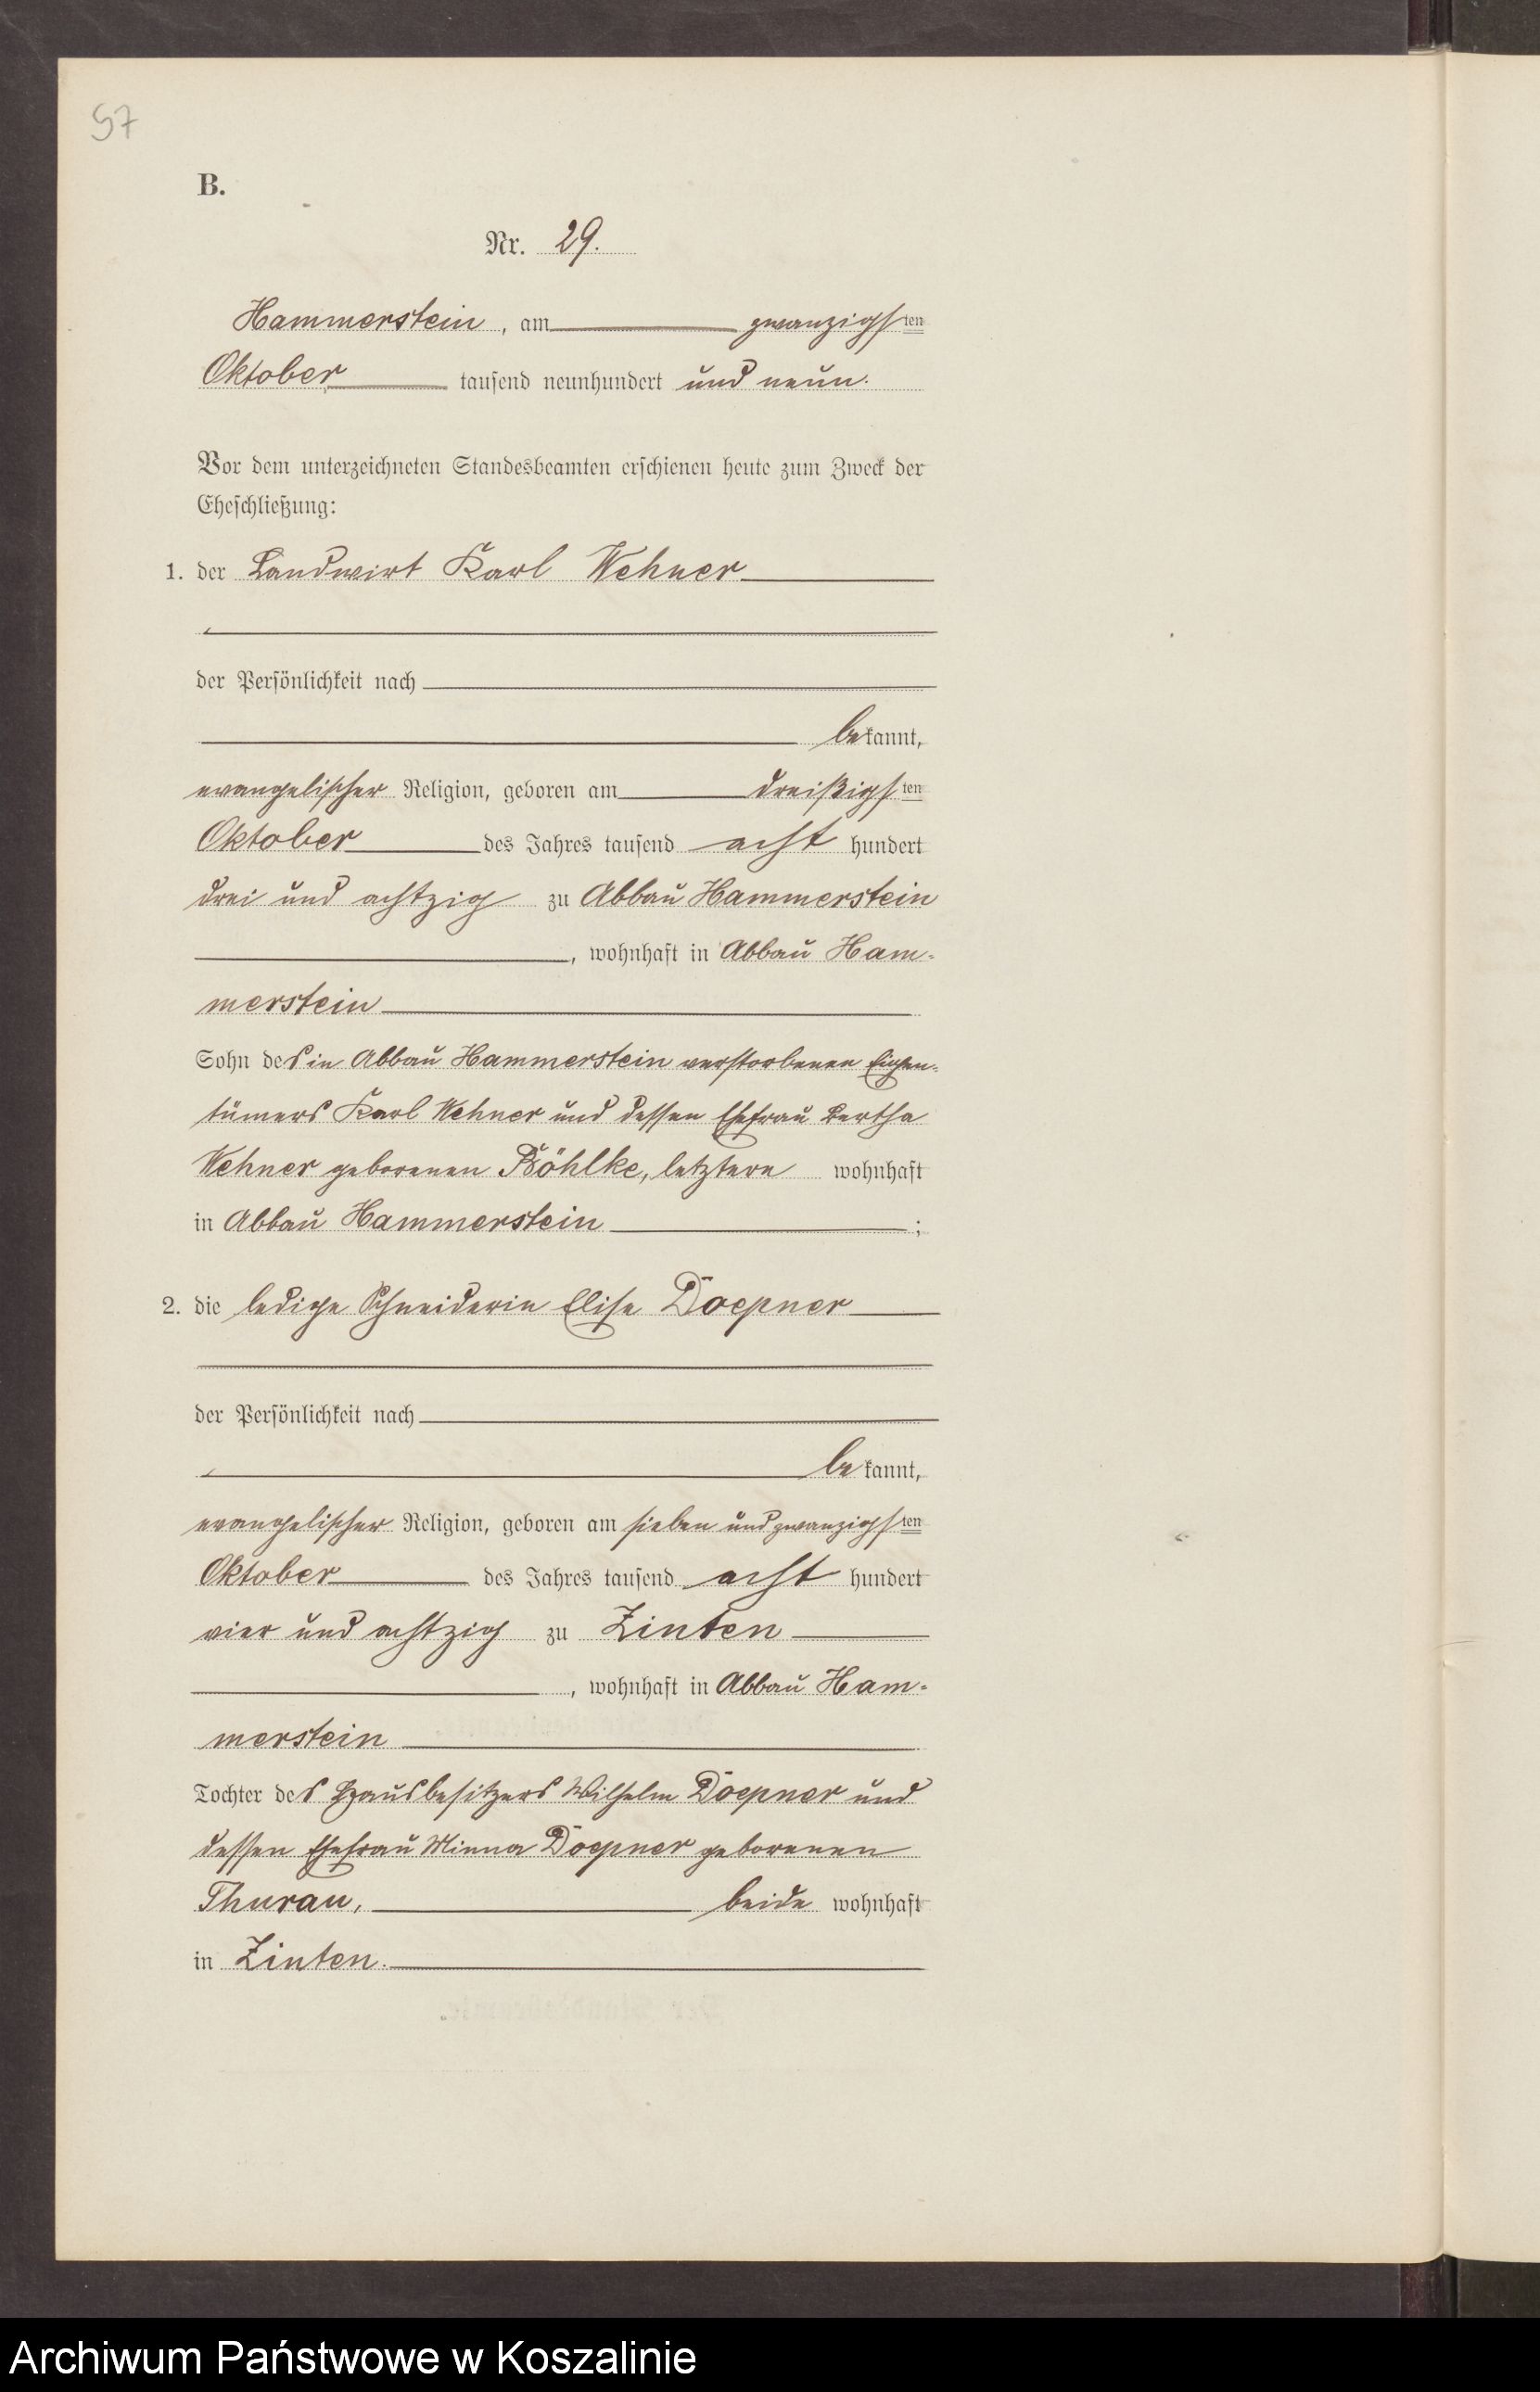 57
B.
Nr. 29.
Hammerstein, am zwanzigsten
Oktober tausend neunhundert und neun.
Vor dem unterzeichneten Standesbeamten erschienen heute zum Zweck der
Eheschließung:
1. der Landwirt Karl Wehner
der Persönlichkeit nach
bekannt,
evangelischer Religion, geboren am dreißigsten
Oktober des Jahres tausend acht hundert
drei und achtzig zu Abbau Hammerstein
, wohnhaft in Abbau Ham-
merstein
Sohn des in Abbau Hammerstein verstorbenen Eigen-
tümers Karl Wehner und dessen Ehefrau Bertha
Wehner geborenen Böhlke, letztere wohnhaft
in Abbau Hammerstein ;
2. die ledige Schneiderin Elise Doepner
der Persönlichkeit nach
bekannt,
evangelischer Religion, geboren am sieben und zwanzigsten
Oktober des Jahres tausend acht hundert
vier und achtzig zu Zinten
, wohnhaft in Abbau Ham-
merstein
Tochter des Hausbesitzers Wilhelm Doepner und
dessen Ehefrau Minna Doepner geborenen
Thurau, beide wohnhaft
in Zinten.
Archiwum Państwowe w Koszalinie